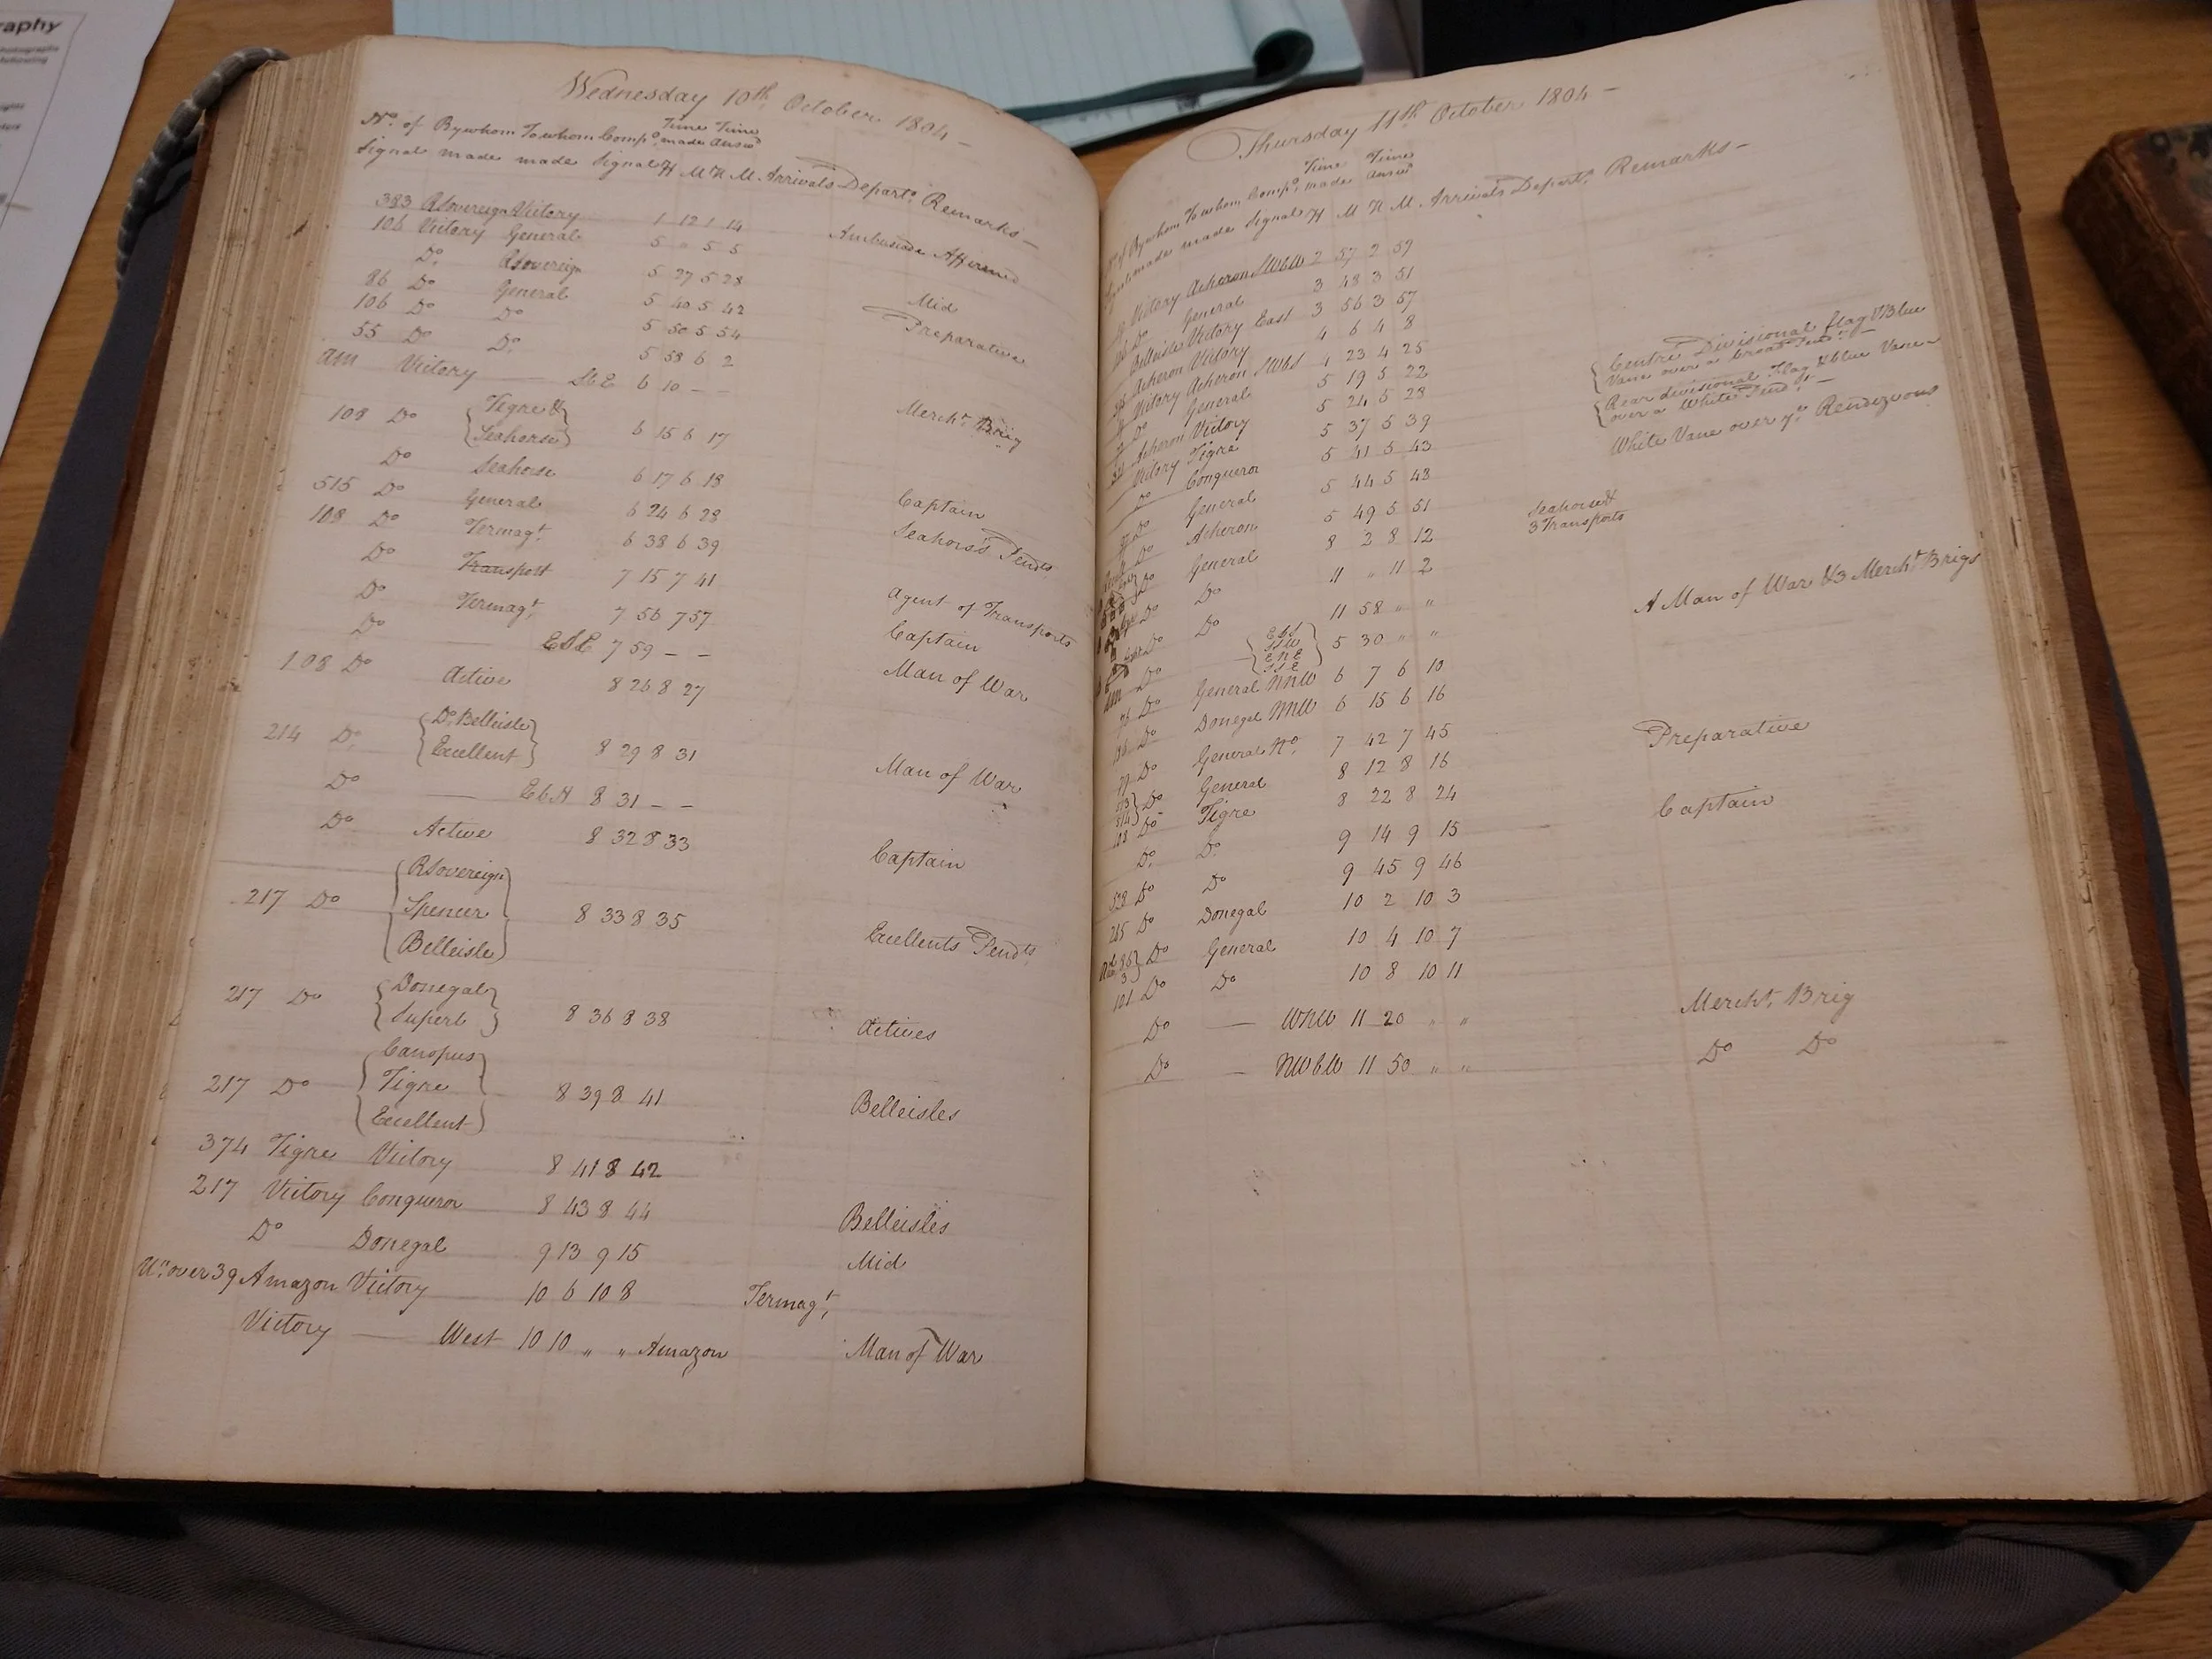 raphy
Wednesday 10th October 1804 –
No. of By whom To whom Compo. Time Time
made answd
Signal made made Signal H M H M Arrivals Departs. Remarks –
383 RSovereign Victory 1 12 1 14 Ambuscade Affirmed
106 Victory General 5 " 5 5
Do. RSovereign 5 27 5 28 Mid
86 Do General 5 40 5 42 Preparative
106 Do Do 5 50 5 54
55 Do Do. 5 58 6 2
AM Victory — SbE 6 10 – – Mercht. Brig
108 Do {Tigre & Seahorse} 6 15 6 17
Do Seahorse 6 17 6 18 Captain
515 Do General 6 24 6 28 Seahorse's Pendts
108 Do Termagt. 6 38 6 39
Do Transport 7 15 7 41 Agent of Transports
Do Termagt. 7 56 7 57 Captain
Do — ESE 7 59 – – Man of War
108 Do Active 8 26 8 27
214 Do. {Do. Belleisle Excellent} 8 29 8 31 Man of War
Do — EbN 8 31 – –
Do Active 8 32 8 33 Captain
217 Do {RSovereign Spencer Belleisle} 8 33 8 35 Excellents Pendts.
217 Do {Donegal Superb} 8 36 8 38 Actives
217 Do {Canopus Tigre Excellent} 8 39 8 41 Belleisles
374 Tigre Victory 8 41 8 42
217 Victory Conqueror 8 43 8 44 Belleisles
Do Donegal 9 13 9 15 Mid
Un. over 39 Amazon Victory 10 6 10 8 Termagt.
Victory — West 10 10 " " Amazon Man of War
Thursday 11th October 1804 –
No of By whom To whom Compo. Time Time
made answd
made made Signal H M H M Arrivals Departs. Remarks –
Victory Acheron SWbW 2 57 2 59
Do General 3 48 3 51
Belleisle Victory East 3 56 3 57
Acheron Victory 4 6 4 8
Victory Acheron SWbS 4 23 4 25 {Centre Divisional flag & Blue
Vane over a broad Pendt. –
Do General 5 19 5 22 {Rear divisional Flag & blue Vane –
over a White Pendt. –
Acheron Victory 5 24 5 28 White Vane over ye. Rendezvous
Victory Tigre 5 37 5 39
Do Conqueror 5 41 5 43
Do General 5 44 5 48
Do Acheron 5 49 5 51 Seahorse &
3 Transports
Do General 8 2 8 12
Do Do 11 " 11 2
Do Do 11 58 " " A Man of War & 3 Mercht. Brigs
AM Do — {EbS SSW ENE SSE} 5 30 " "
76 Do General NNW 6 7 6 10
Do Donegal NNW 6 15 6 16
Do General No. 7 42 7 45 Preparative
513 514} Do General 8 12 8 16
108 Do Tigre 8 22 8 24 Captain
Do. Do. 9 14 9 15
Do Do 9 45 9 46
215 Do Donegal 10 2 10 3
Do General 10 4 10 7
101 Do Do 10 8 10 11
Do — WNW 11 20 " " Mercht. Brig
Do — NWbW 11 50 " " Do Do